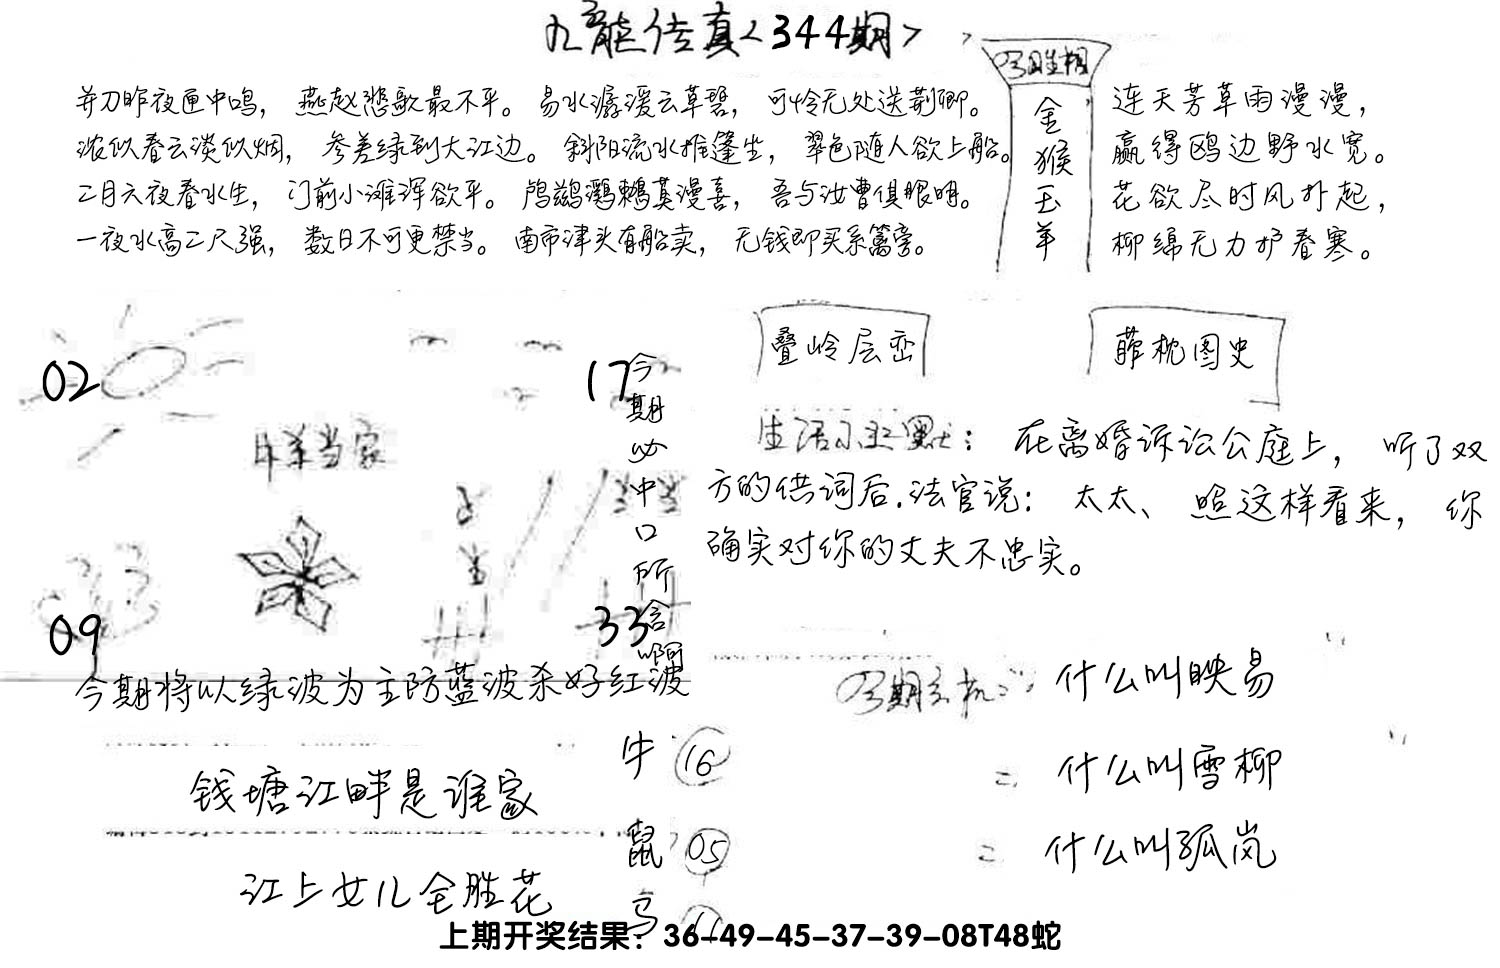 九龙传真<344期>
今期生相
金猴玉羊
并刀昨夜匣中鸣，燕赵悲歌最不平。易水潺湲云草碧，可怜无处送荆卿。
浓似春云淡似烟，参差绿到大江边。斜阳流水推篷坐，翠色随人欲上船。
二月六夜春水生，门前小滩浑欲平。鸬鹚鸂鶒莫漫喜，吾与汝曹俱眼明。
一夜水高二尺强，数日不可更禁当。南市津头有船卖，无钱即买系篱旁。
连天芳草雨漫漫，
赢得鸥边野水宽。
花欲尽时风扑起，
柳绵无力护春寒。
02
17
09
33
今期必中口所含啊
今期将以绿波为主防蓝波杀好红波
叠岭层峦
葄枕图史
生活小幽默：在离婚诉讼公庭上，听了双
方的供词后.法官说：太太、照这样看来，你
确实对你的丈夫不忠实。
今期玄机：什么叫映易
= 什么叫雪柳
= 什么叫孤岚
牛 16
鼠 05
钱塘江畔是谁家
江上女儿全胜花
上期开奖结果：36-49-45-37-39-08T48蛇